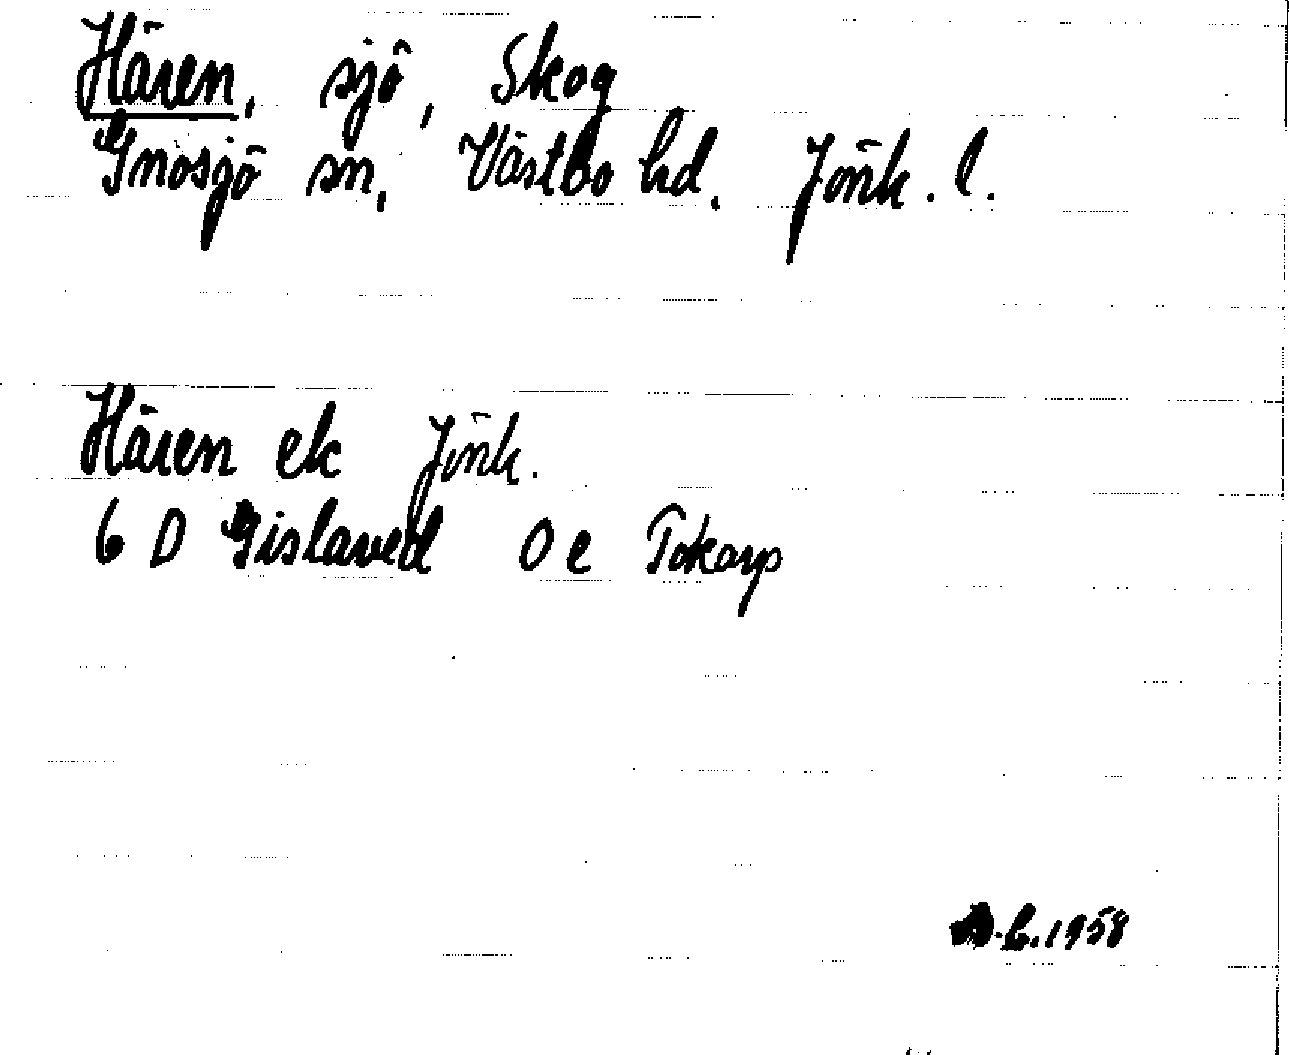 Hären, sjö, Skog
Gnosjö sn, Västbo hd. Jönk. l.
Hären ek Jönk.
6 D Gislaved 0 e Tokarp
1958